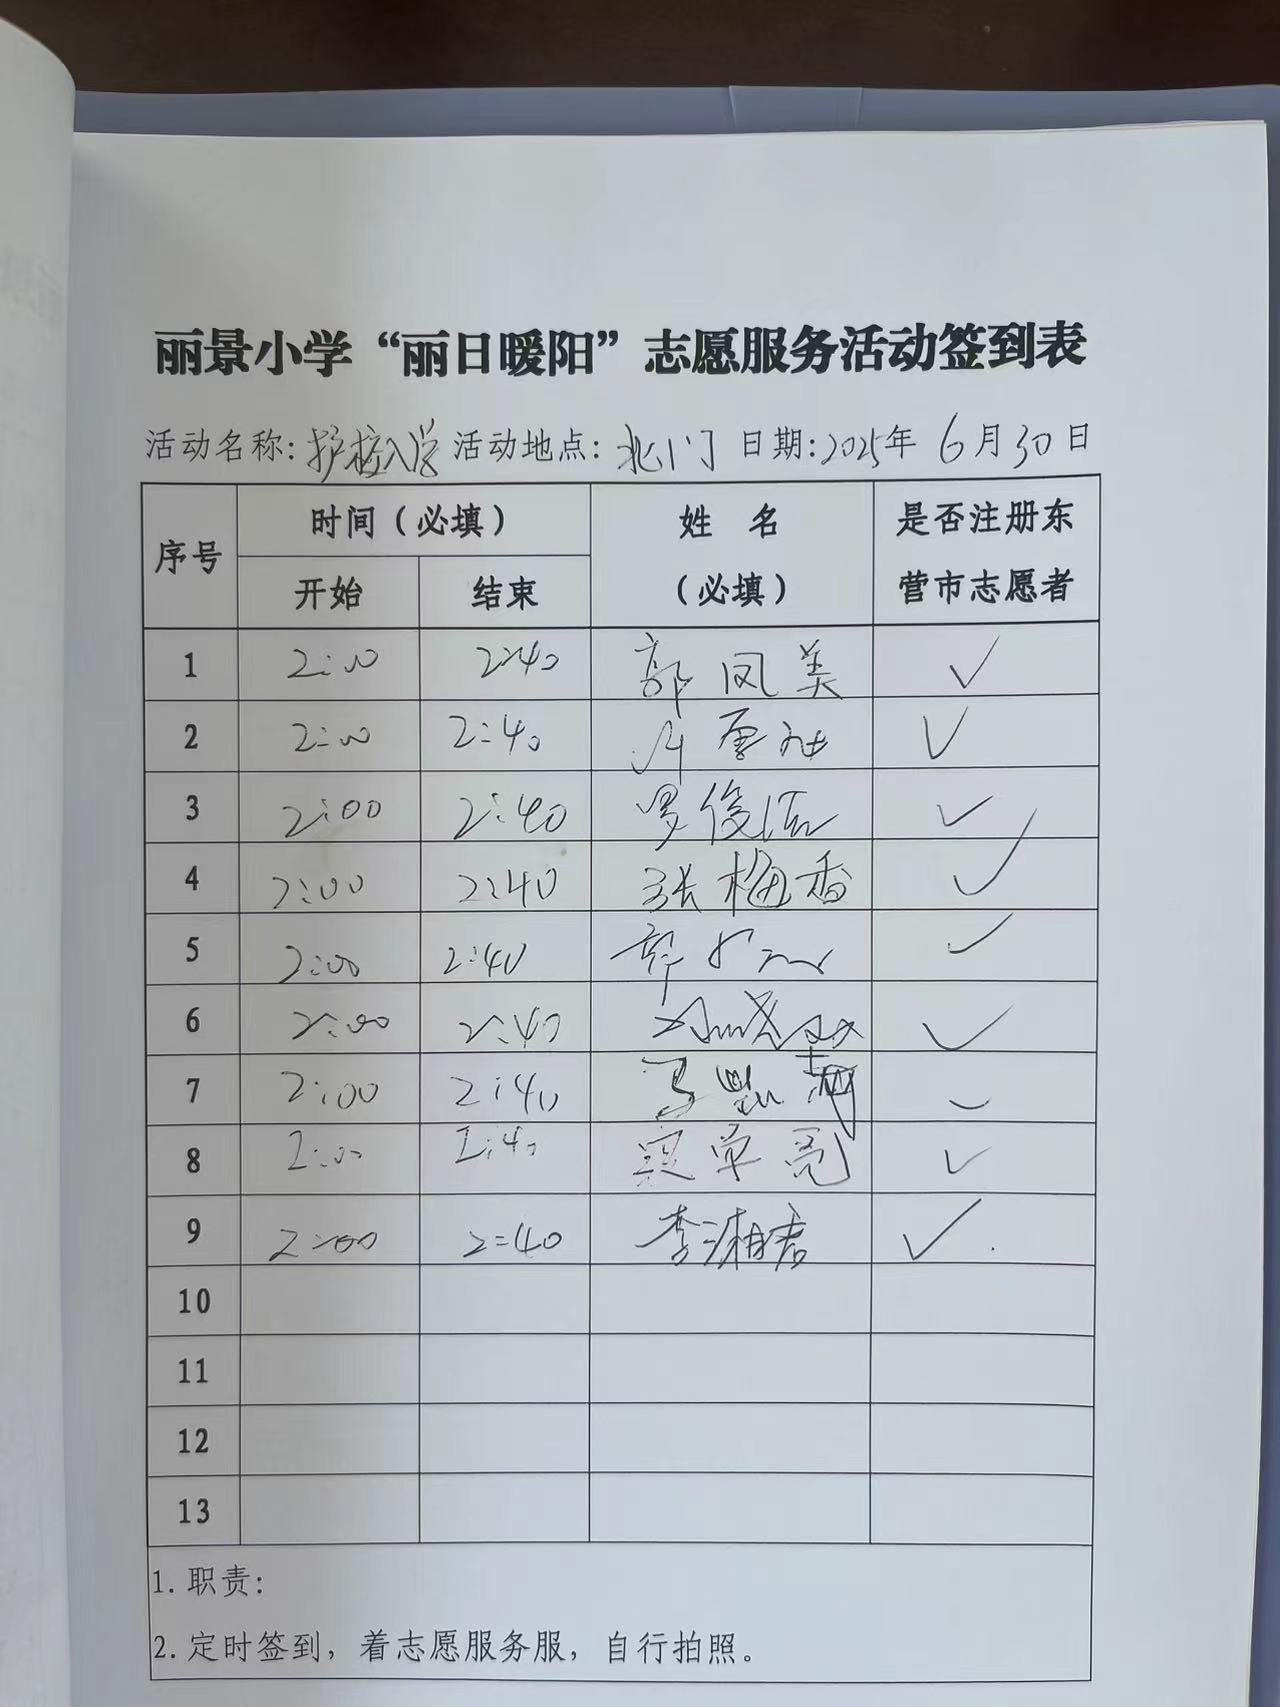 丽景小学“丽日暖阳”志愿服务活动签到表
活动名称:护校入学 活动地点:北门 日期:2025年 6月30日
序号 时间(必填) 姓 名 (必填) 是否注册东营市志愿者
开始 结束
1 2:00 2:40 郭凤美 ✓
2 2:00 2:40 ✓
3 2:00 2:40 罗俊洁 ✓
4 2:00 2:40 张梅香 ✓
5 2:00 2:40 ✓
6 2:00 2:40 ✓
7 2:00 2:40 ✓
8 2:00 2:40 ✓
9 2:00 2:40 李湘君 ✓
10
11
12
13
1. 职责:
2. 定时签到，着志愿服务服，自行拍照。